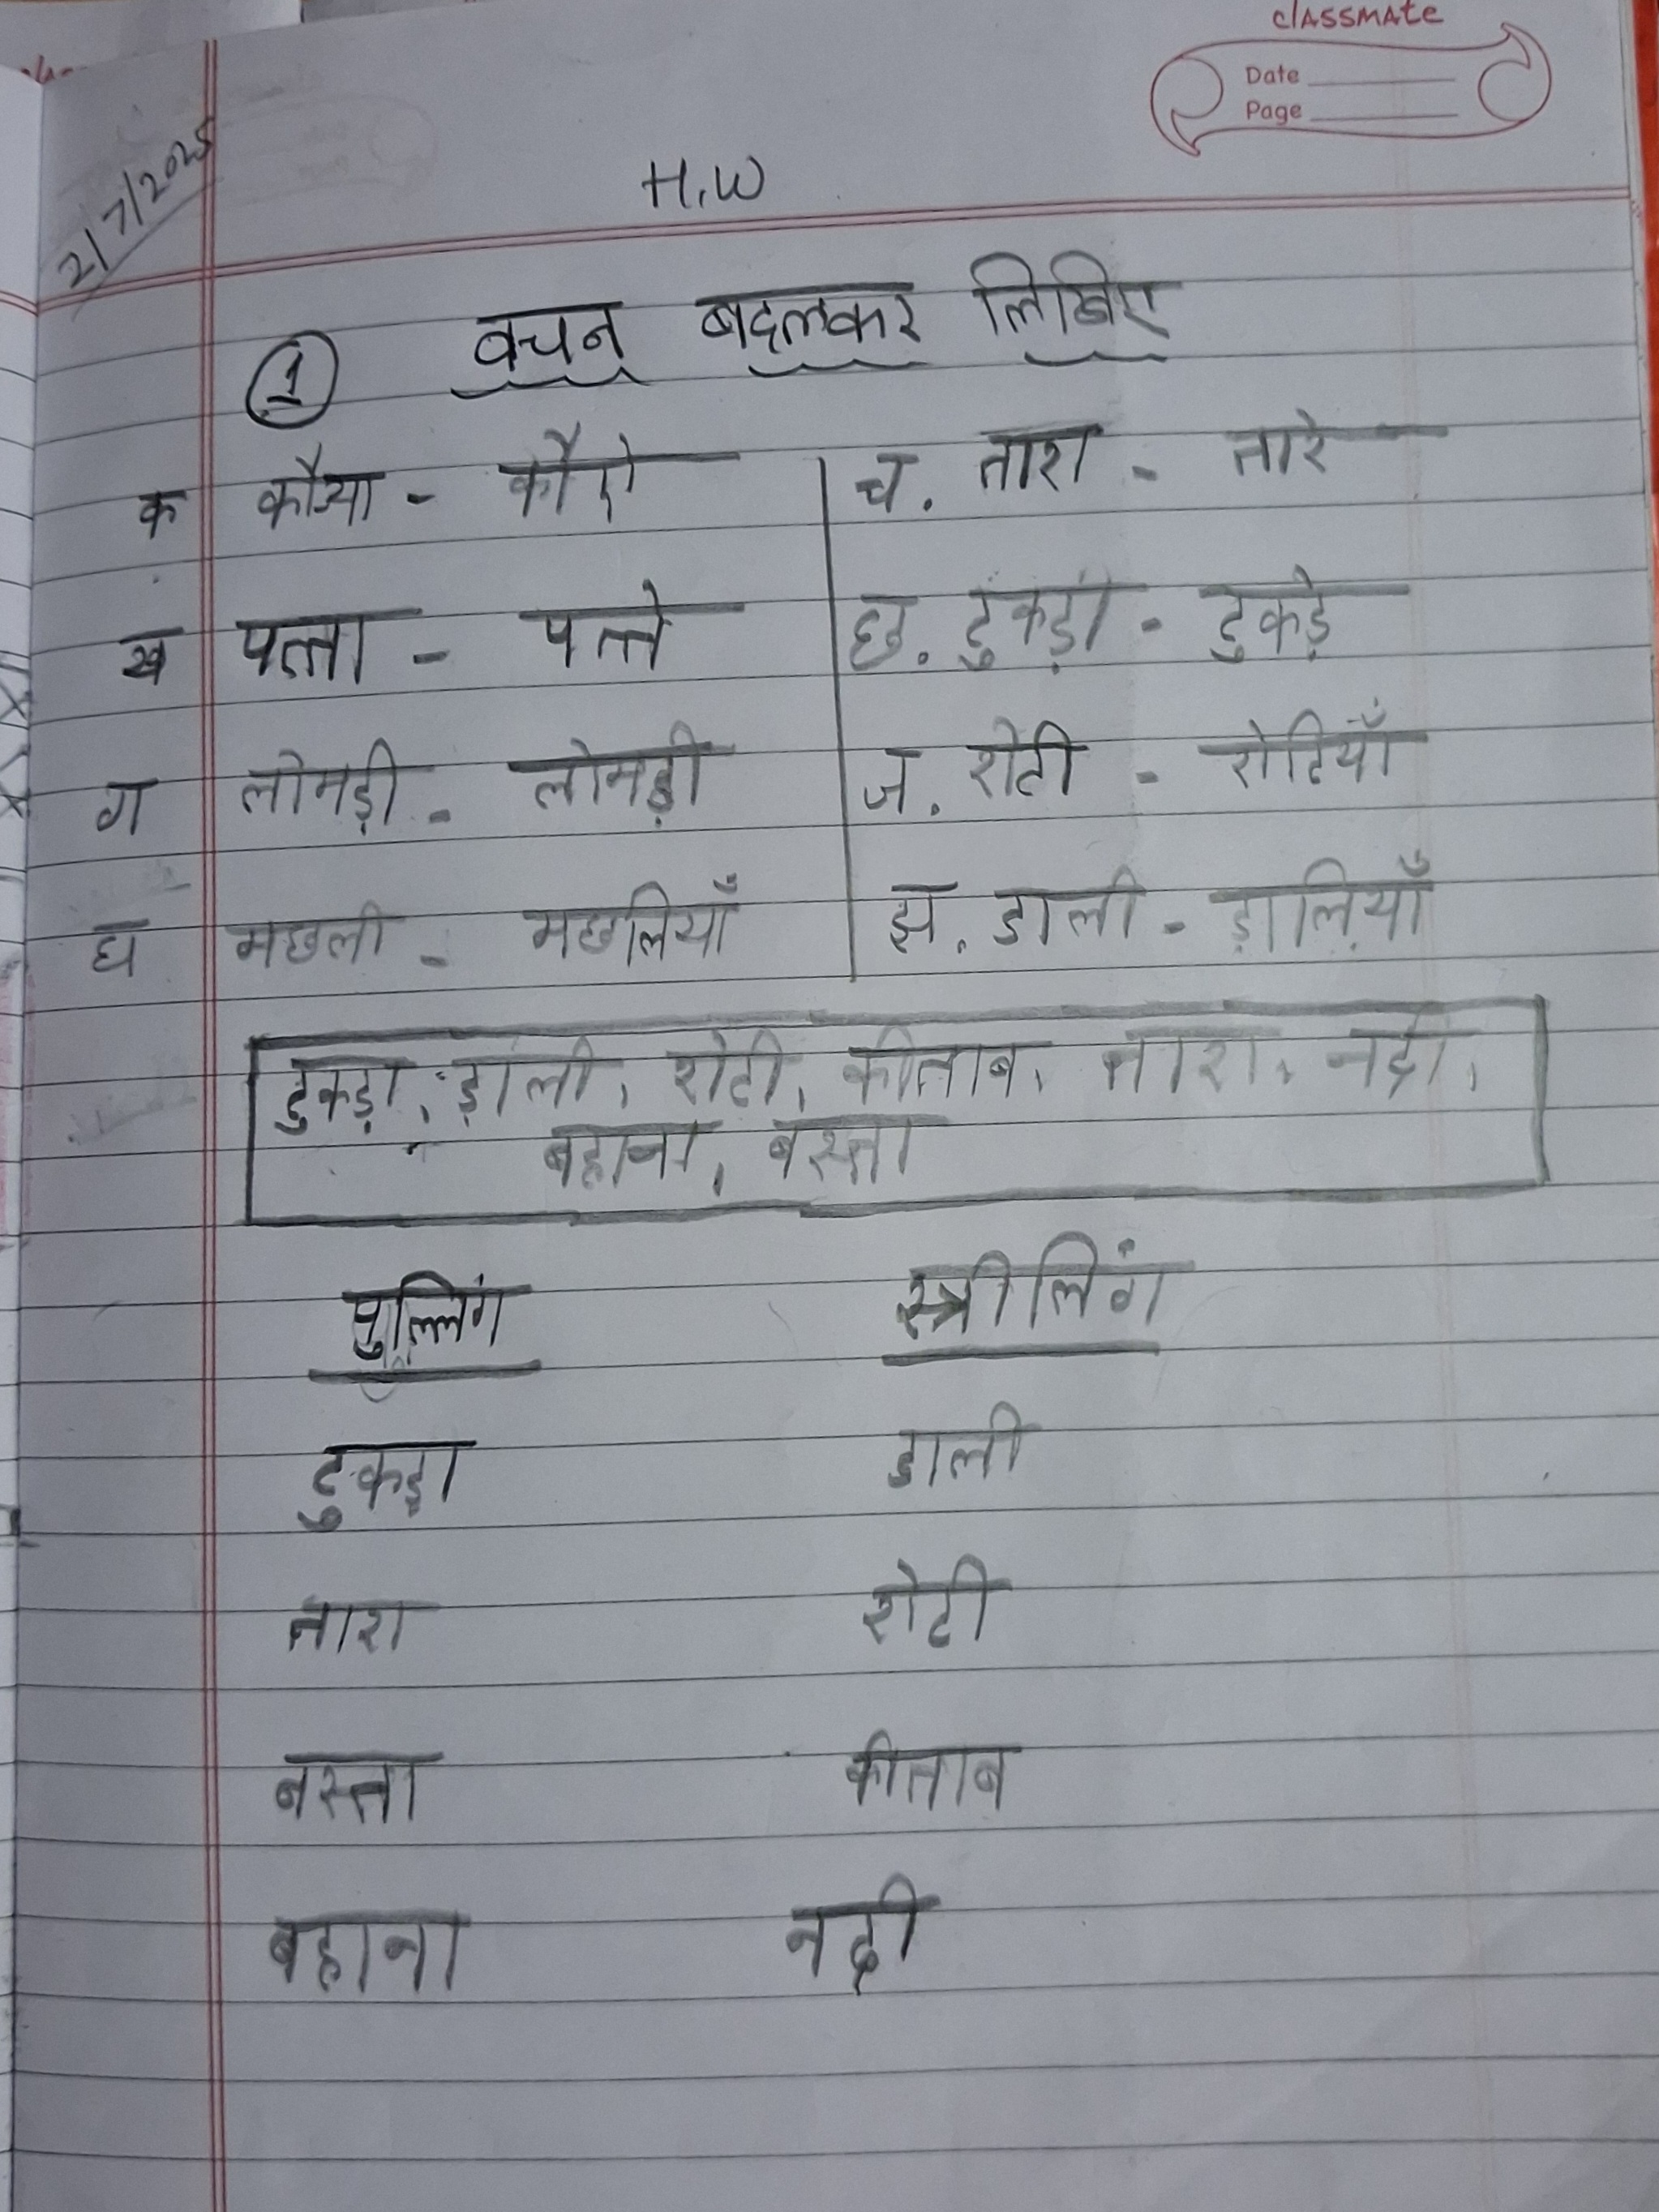 classmate
Date
Page
2/7/2025
H.W
① वचन बदलकर लिखिए
क कौआ - कौऐ
ख पत्ता - पत्ते
ग लोमड़ी - लोमड़ी
घ मछली - मछलियाँ
च. तारा - तारे
छ. टुकड़ा - टुकड़े
ज. रोटी - रोटियाँ
झ. डाली - ड़ालियाँ
टुकड़ा, ड़ाली, रोटी, कीताब, तारा, नदी,
बहाना, बस्ता
पुल्लिंग स्त्रीलिंग
टुकड़ा डाली
तारा रोटी
बस्ता कीताब
बहाना नदी